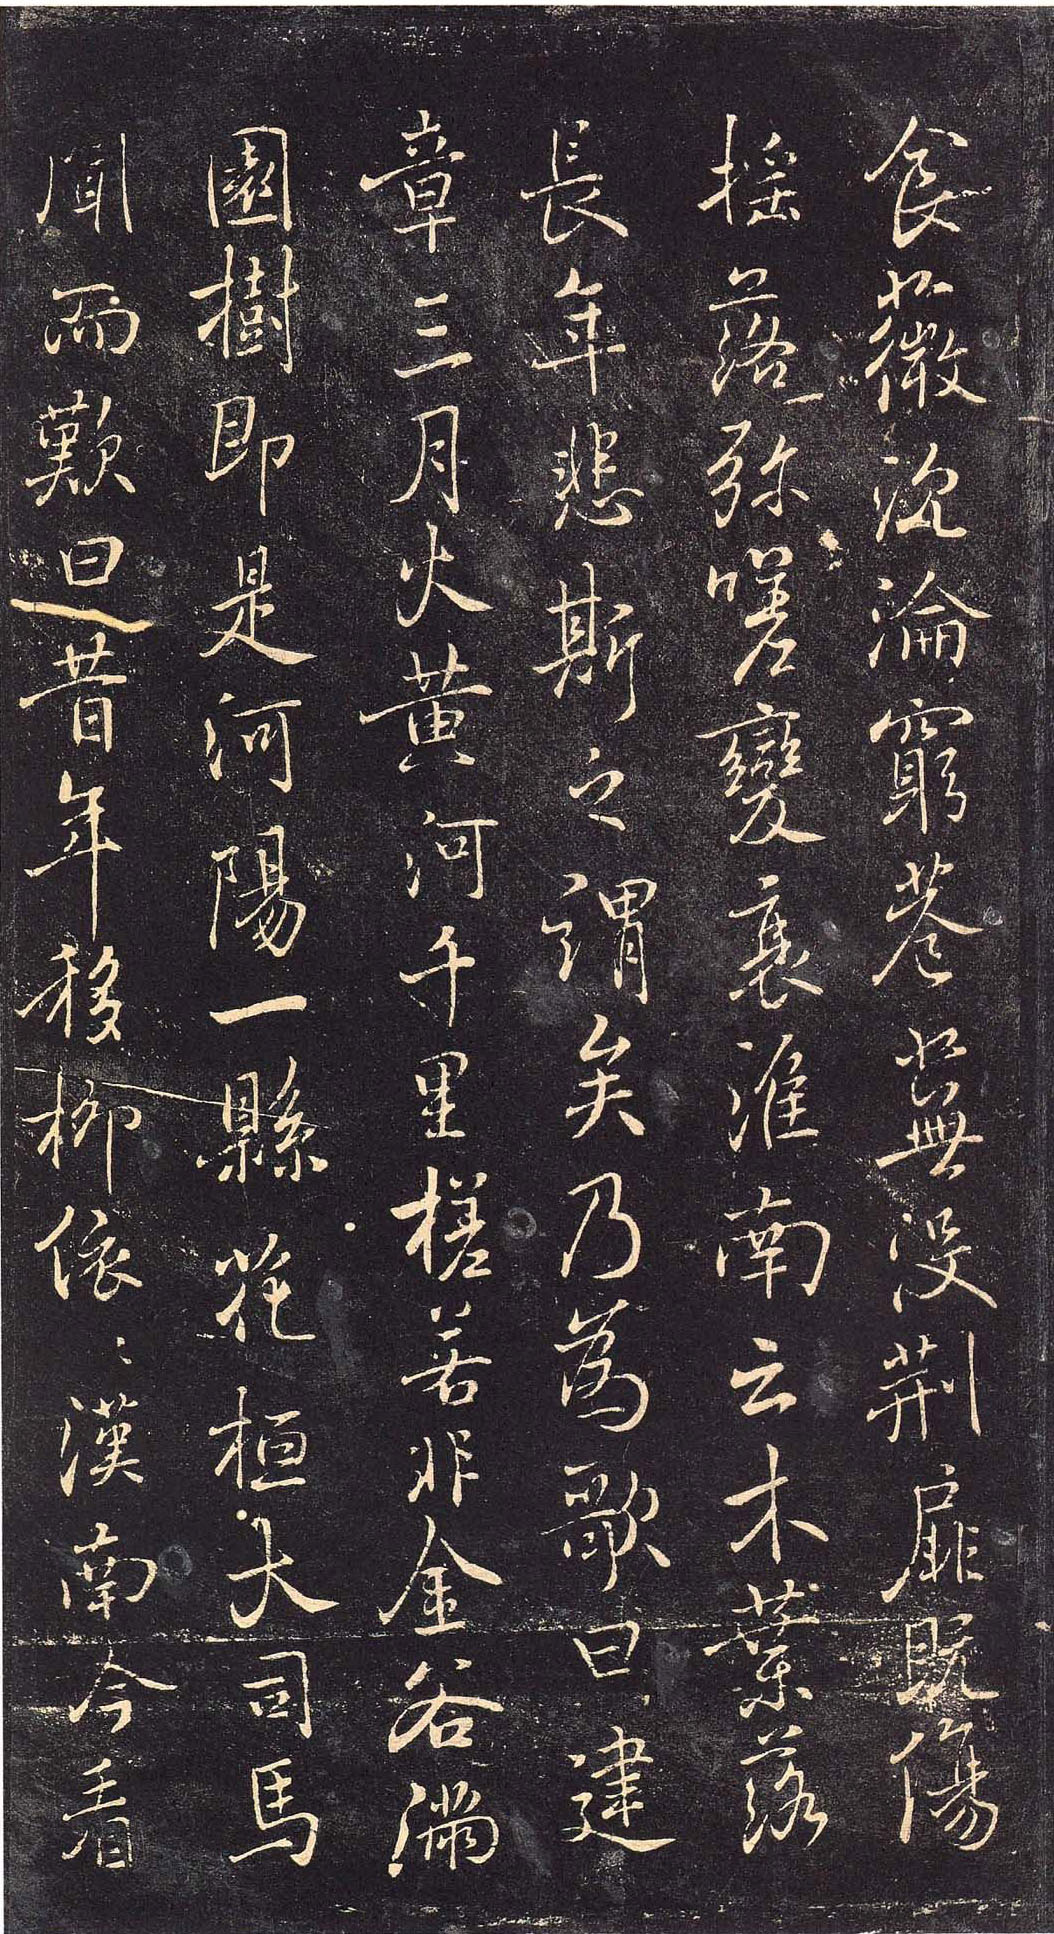 食薇沉淪窮巷蕪没荆扉既傷
揺落弥嗟變衰淮南云木葉落
長年悲斯之謂矣乃為歌曰建
章三月火黄河千里槎若非金谷滿
園樹即是河陽一縣花桓大司馬
聞而歎曰昔年移柳依〻漢南今看